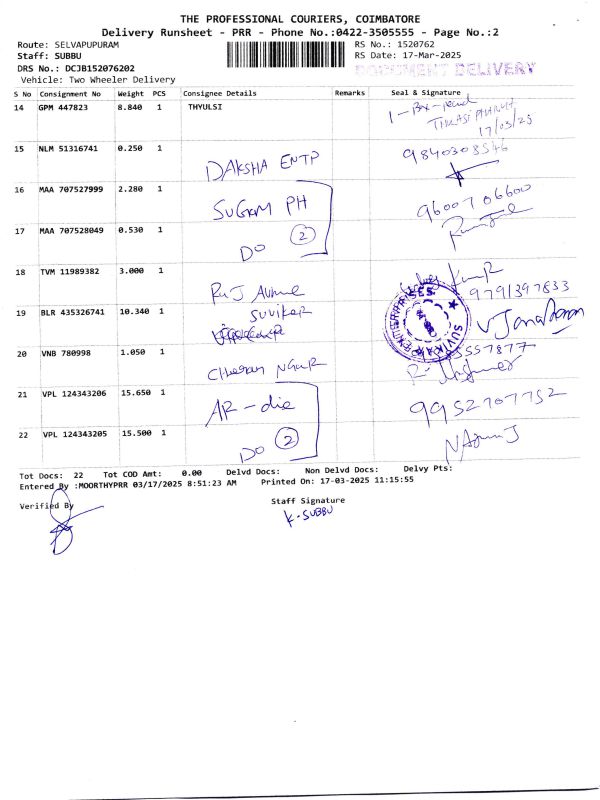 THE PROFESSIONAL COURIERS, COIMBATORE
Delivery Runsheet - PRR - Phone No.:0422-3505555 - Page No.:2
Route: SELVAPUPURAM RS No.: 1520762
Staff: SUBBU RS Date: 17-Mar-2025
DRS No.: DCJB152076202 DOCUMENT DELIVERY
Vehicle: Two Wheeler Delivery
S No Consignment No Weight PCS Consignee Details Remarks Seal & Signature
14 GPM 447823 8.840 1 THYULSI 1 - Box
17/03/25
15 NLM 51316741 0.250 1 DAKSHA ENTP 9840308546
16 MAA 707527999 2.280 1 SUGAM PH 9600706600
17 MAA 707528049 0.530 1 DO 2
18 TVM 11989382 3.000 1 Kumar
9791397833
19 BLR 435326741 10.340 1 SUVIKAR
ENTERPRISES SUVIKAR
20 VNB 780998 1.050 1 57877
21 VPL 124343206 15.650 1 AR - die 9952707752
22 VPL 124343205 15.500 1 DO 2
Tot Docs: 22 Tot COD Amt: 0.00 Delvd Docs: Non Delvd Docs: Delvy Pts:
Entered By :MOORTHYPRR 03/17/2025 8:51:23 AM Printed On: 17-03-2025 11:15:55
Verified By Staff Signature
K. SUBBU